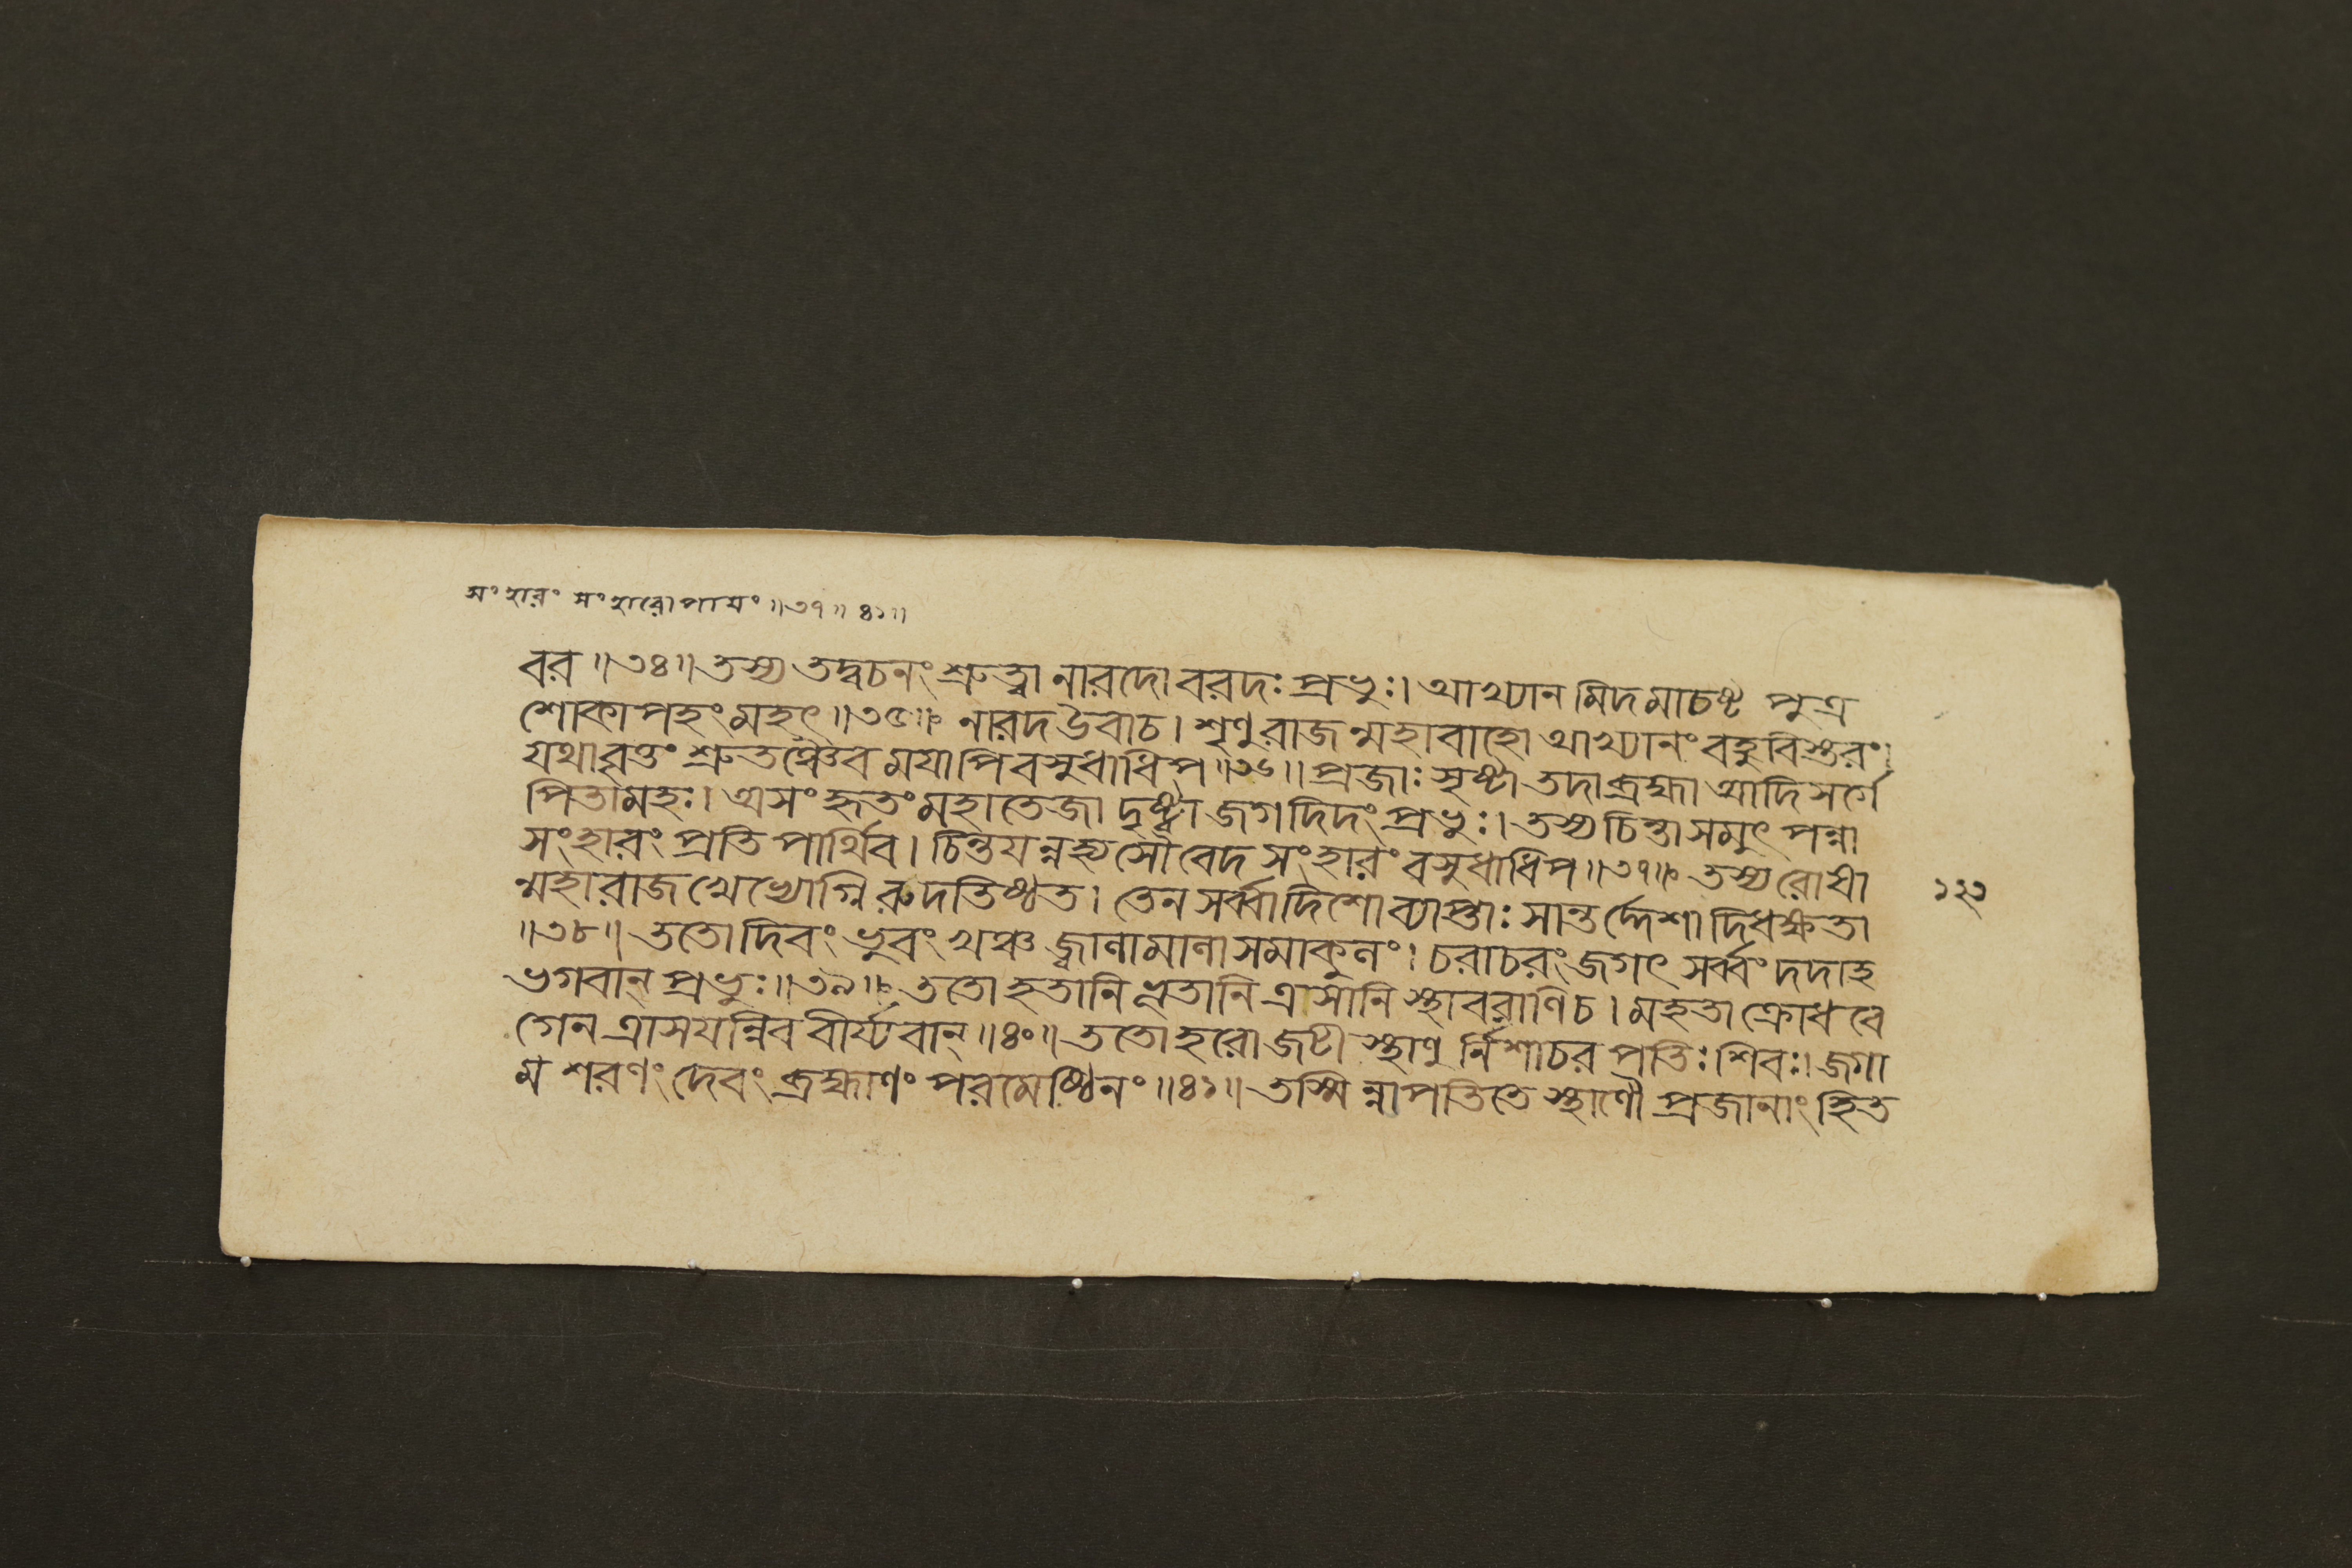 সংহারং সংহারোপায়ং॥৩৭॥৪১॥
বর॥৩৪॥তস্য তদ্বচনং শ্রুত্বা নারদো বরদঃ প্রভুঃ। আখ্যান মিদ মাচষ্ট পুত্র
শোকাপহং মহৎ॥৩৫॥ নারদ উবাচ। শৃণু রাজ ন্মহাবাহো আখ্যানং বহুবিস্তরং।
যথাবৃত্তং শ্রুতঞ্চৈব ময়াপি বসুধাধিপ॥৩৬॥প্রজাঃ সৃষ্ট্বা তদা ব্রহ্মা আদিসর্গে
পিতামহঃ। অসংহৃতং মহাতেজা দৃষ্ট্বা জগদিদং প্রভুঃ। তস্য চিন্তা সমুৎপন্না
সংহারং প্রতি পার্থিব। চিন্তয়ন্নহ্যসৌ বেদ সংহারং বসুধাধিপ॥৩৭॥ তস্য রোষা
ন্মহারাজ খেভ্যোগ্নি রুদতিষ্ঠত। তেন সর্ব্বাদিশো ব্যাপ্তাঃ সান্তর্দ্দেশা দিধক্ষতা
॥৩৮॥ ততো দিবং ভুবং খঞ্চ জ্বালামালা সমাকুলং। চরাচরং জগৎ সর্ব্বং দদাহ
ভগবান্ প্রভুঃ॥৩৯॥ ততো হতানি ভূতানি ত্রাসানি স্থাবরাণিচ। মহতা ক্রোধবে
গেন ত্রাসয়ন্নিব বীর্য্যবান্॥৪০॥ ততো হরো জটী স্থাণু র্নিশাচর পতিঃ শিবঃ। জগা
ম শরণং দেবং ব্রহ্মাণং পরমেষ্ঠিনং॥৪১॥ তস্মি ন্নাপতিতে স্থাণৌ প্রজানাং হিত
১২৩